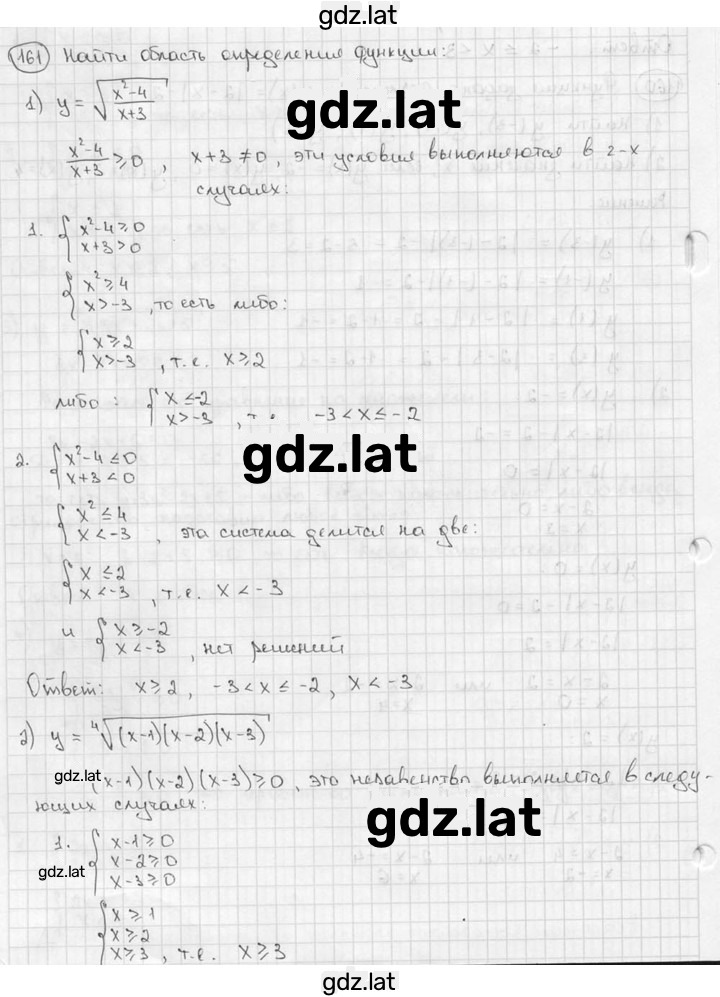 gdz.lat
161 Найти область определения функции:
1) y = √((x²-4)/(x+3))
gdz.lat
(x²-4)/(x+3) ≥ 0, x+3 ≠ 0, эти условия выполняются в 2-х
случаях:
1. { x²-4 ≥ 0
x+3 > 0
{ x² ≥ 4
x > -3, то есть либо:
{ x ≥ 2
x > -3, т.е. x ≥ 2
либо: { x ≤ -2
x > -3, т. -3 < x ≤ -2
gdz.lat
2. { x²-4 ≤ 0
x+3 < 0
{ x² ≤ 4
x < -3, эта система делится на две:
{ x ≤ 2
x < -3, т.е. x < -3
и { x ≥ -2
x < -3, нет решений
Ответ: x ≥ 2, -3 < x ≤ -2, x < -3
2) y = ⁴√((x-1)(x-2)(x-3))
gdz.lat
(x-1)(x-2)(x-3) ≥ 0, это неравенство выполняется в следу-
ющих случаях:
gdz.lat
1. { x-1 ≥ 0
x-2 ≥ 0
x-3 ≥ 0
gdz.lat
{ x ≥ 1
x ≥ 2
x ≥ 3, т.е. x ≥ 3
gdz.lat